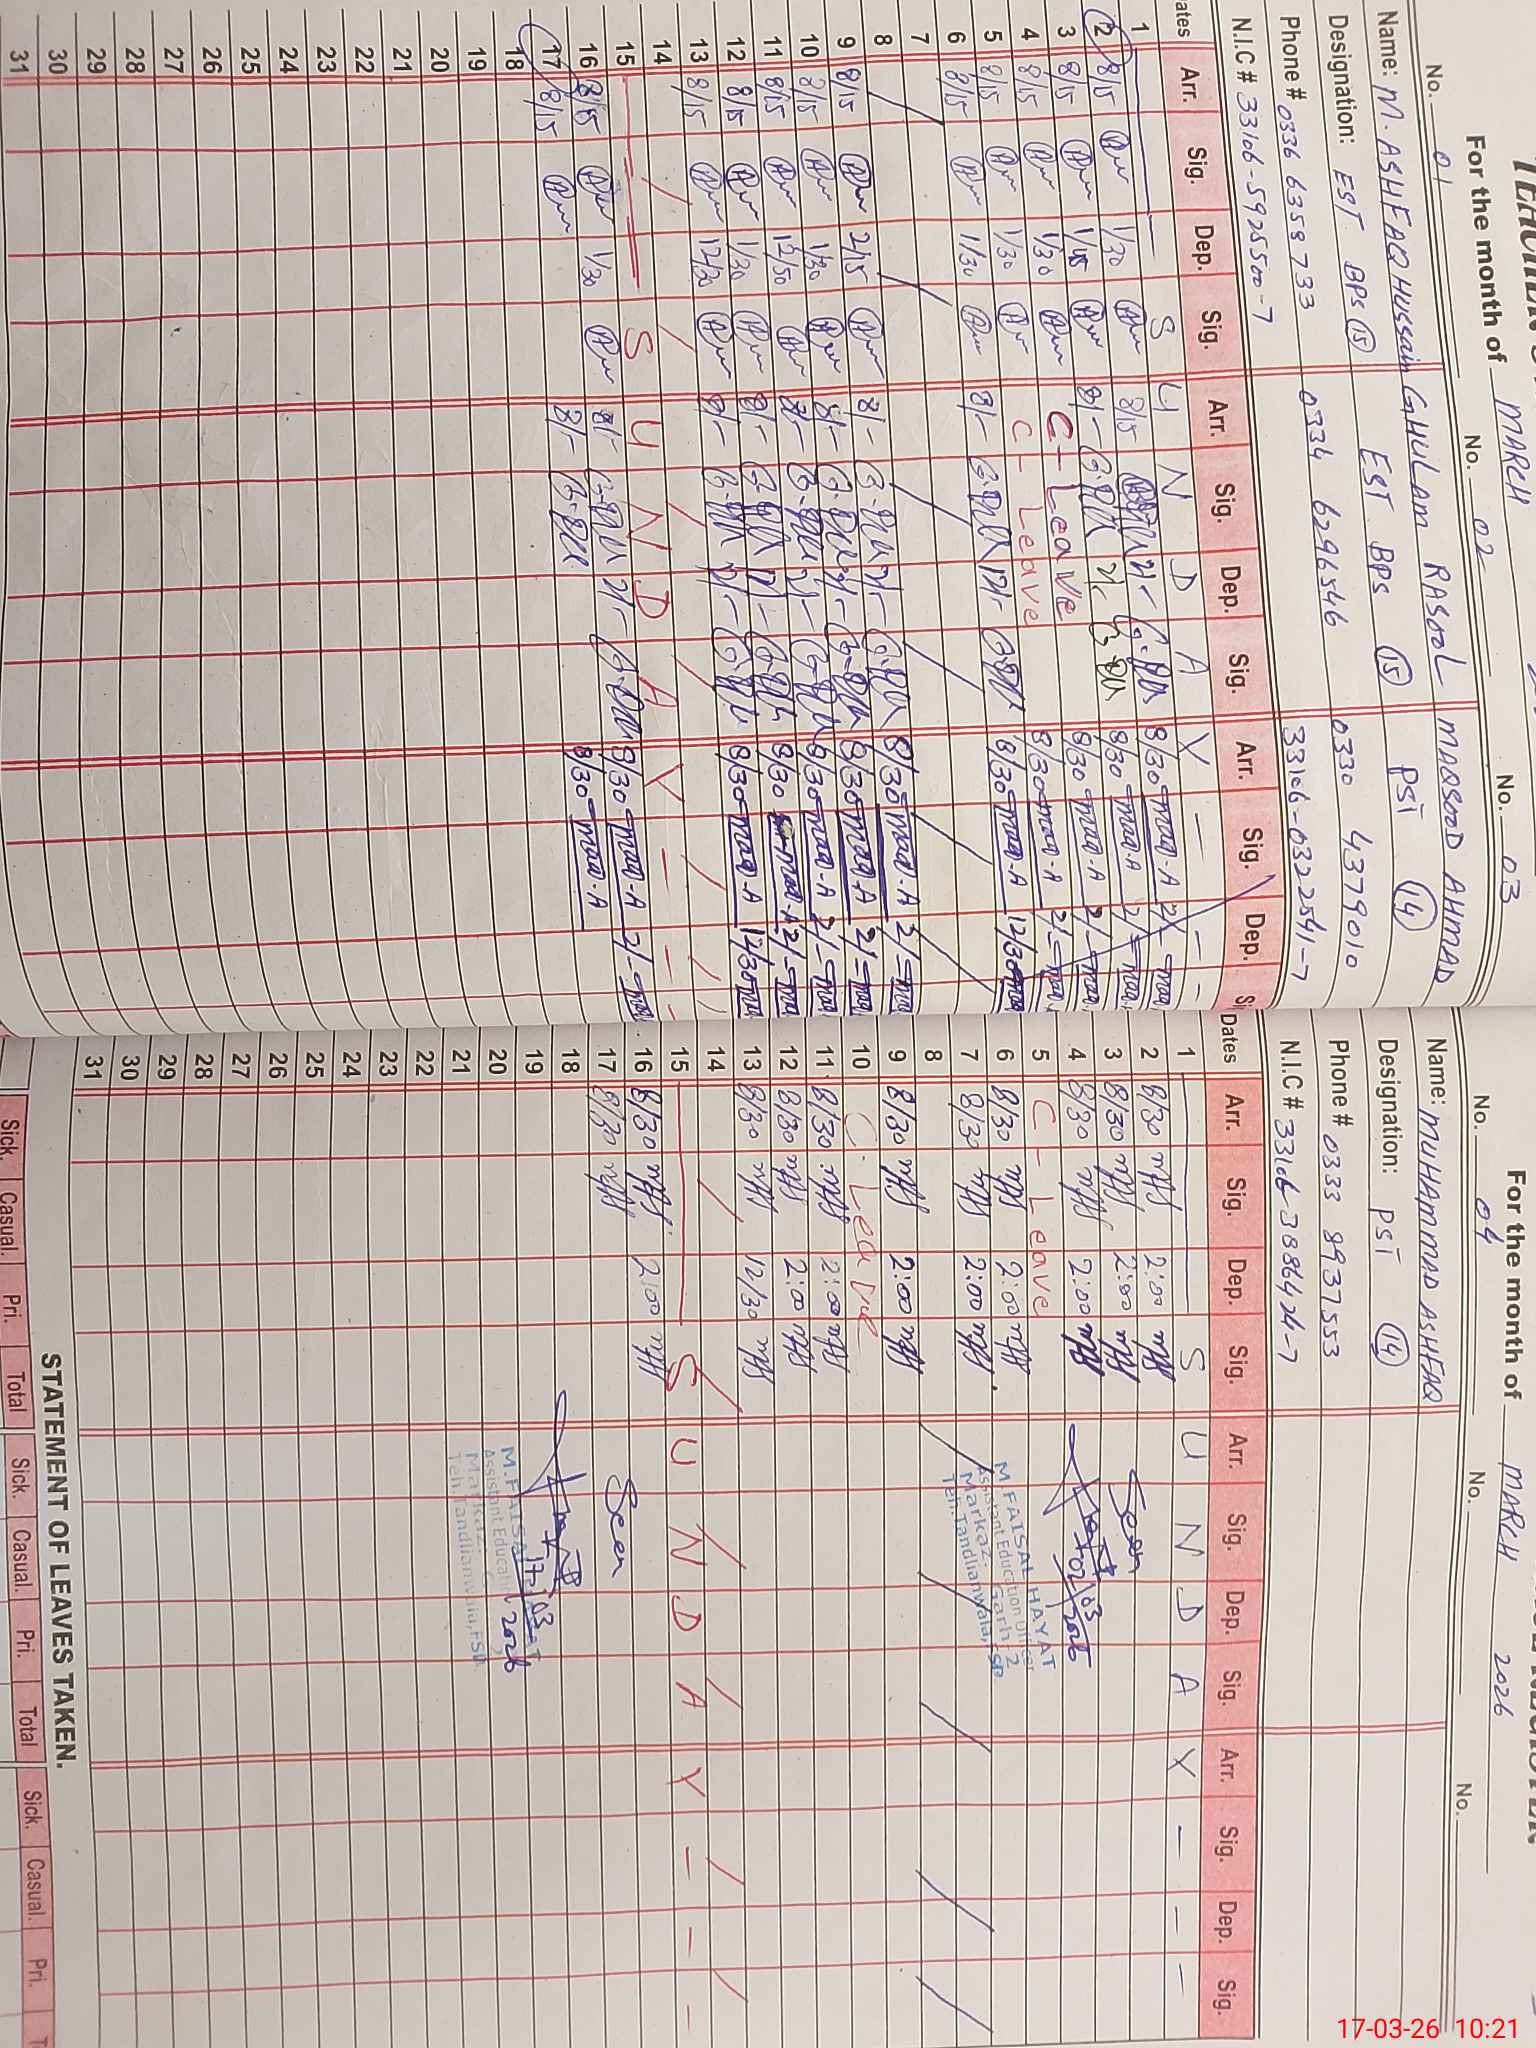 For the month of MARCH
No. 01 No. 02 No. 03
Name: M. ASHFAQ Hussain GHULAM RASOOL MAQSOOD AHMAD
Designation: EST BPS (15) EST BPS (15) PST (14)
Phone # 0336 6358733 0334 6296546 0330 4379010
N.I.C # 33106-5925500-7 33106-0322541-7
ates Arr. Sig. Dep. Sig. Arr. Sig. Dep. Sig. Arr. Sig. Dep.
1 — S U N D A Y — —
2 8/15 1/30 8/15 2/- 8/30 maq.A 2/- maq
3 8/15 1/45 8/- 2/- 8/30 maq.A 2/- maq
4 8/15 1/30 C- Leave 8/30 maq.A 2/- maq
5 8/15 1/30 C- Leave 8/30 maq.A 2/- maq
6 8/15 1/30 8/- 12/- 8/30 maq.A 12/30 maq
7
8
9 8/15 2/15 8/- 2/- 8/30 maq.A 2/- maq
10 8/15 1/30 8/- 2/- 8/30 maq.A 2/- maq
11 8/15 12/50 8/- 2/- 8/30 maq.A 2/- maq
12 8/15 1/30 8/- 2/- 8/30 maq.A 2/- maq
13 8/15 12/30 8/- 8/30 maq.A 12/30 maq
14
15 S U N D A Y - -
16 8/15 1/30 8/- 2/- 8/30 maq.A 2/- maq
17 8/15 8/- 8/30 maq.A
18
19
20
21
22
23
24
25
26
27
28
29
30
31
For the month of MARCH 2026
No. 04 No. No.
Name: MUHAMMAD ASHFAQ
Designation: PST (14)
Phone # 0333 8937553
N.I.C # 33106-3886424-7
Dates Arr. Sig. Dep. Sig. Arr. Sig. Dep. Sig. Arr. Sig. Dep. Sig.
1 S U N D A Y - - -
2 8/30 2:00
3 8/30 2:00 Seen
4 8/30 2:00 02/03/2026
5 C- Leave
M. FAISAL HAYAT
6 8/30 2:00 Assistant Education Officer
Markaz: Garh-2
7 8/30 2:00 Teh. Tandlianwala, FSD.
8
9 8/30 2:00
10 C. Leave
11 8/30 2:00
12 8/30 2:00
13 8/30 12/30
14
15 S U N D A Y - - -
16 8/30 2:00
17 8/30 Seen
18
19 17/03/2026
20 M. FAISAL HAYAT
Assistant Education
21 Markaz:
Teh. Tandlianwala, FSD.
22
23
24
25
26
27
28
29
30
31
STATEMENT OF LEAVES TAKEN.
Sick. Casual. Pri. Total Sick. Casual. Pri. Total Sick. Casual. Pri.
17-03-26 10:21